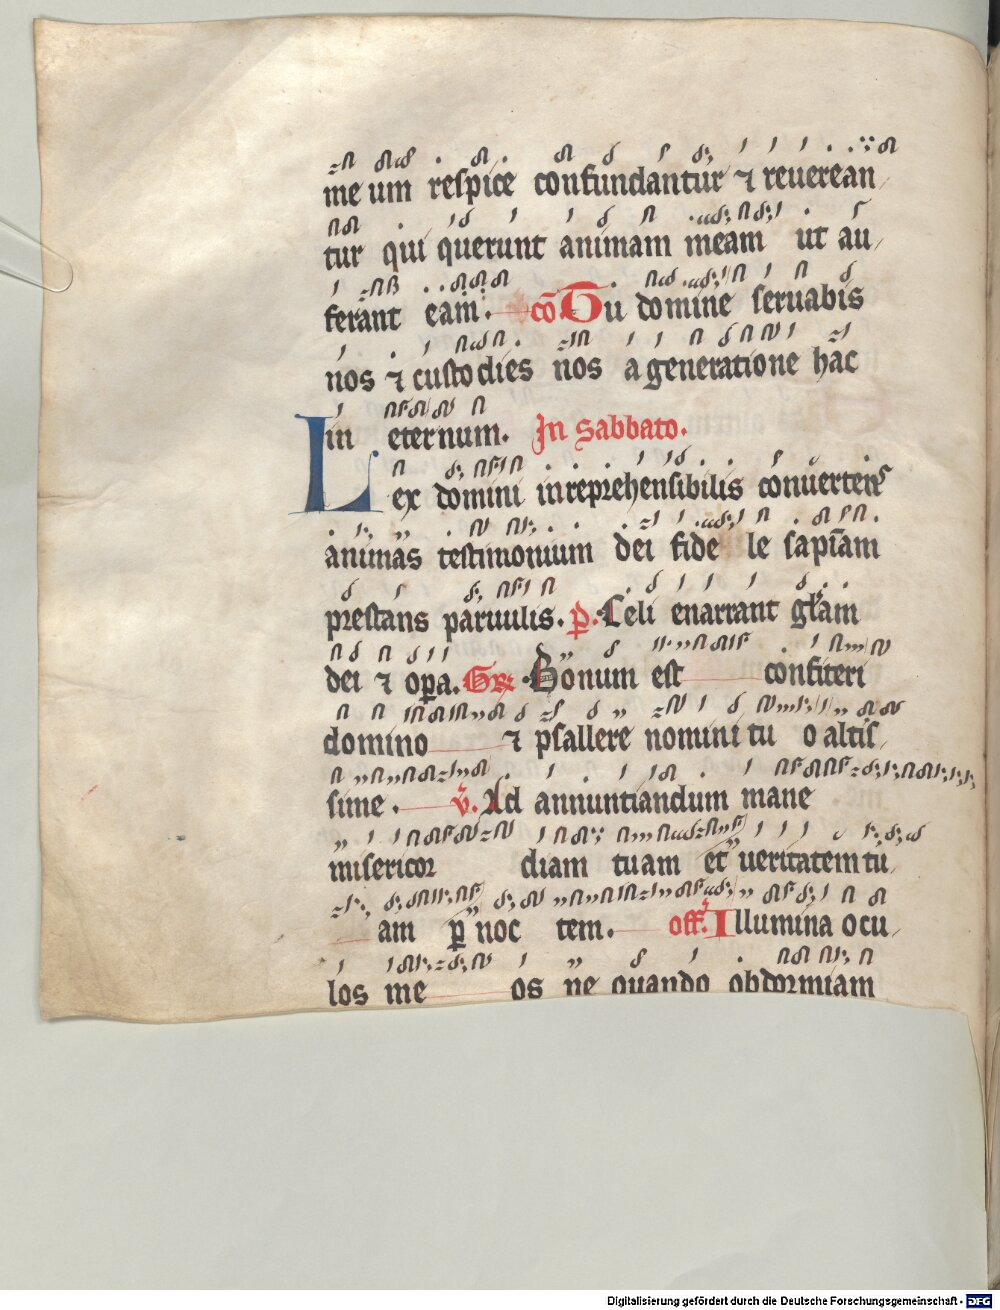 me um respice confundantur ⁊ reuerean
tur qui querunt animam meam ut au
ferant eam. cō Tu domine seruabis
nos ⁊ custodies nos a generatione hac
in eternum. In sabbato.
Lex domini inreprehensibilis conuertens
animas testimonium dei fide le sapiām
prestans paruulis. p̄. Celi enarrant gl̄am
dei ⁊ op̄a. Gr̄ Bonum est confiteri
domino ⁊ psallere nomini tu o altis
sime. v̄. Ad annuntiandum mane
misericor diam tuam et ueritatem tu
am p̄ noc tem. off. Illumina ocu
los me os ne quando obdormiam
Digitalisierung gefördert durch die Deutsche Forschungsgemeinschaft - DFG